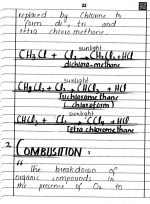 22
replaced by Chlorine to
form di, tri and
tetra chloro methane.
sunlight
CH3Cl + Cl2 → CH2Cl2 + HCl
dichloro-methane
sunlight
CH2Cl2 + Cl2 → CHCl3 + HCl
Trichloromethane
(chloroform)
sunlight
CHCl3 + Cl2 → CCl4 + HCl
Tetra chloromethane
2. COMBUSTION :
" The breakdown of
organic compounds in
the presence of O2 to